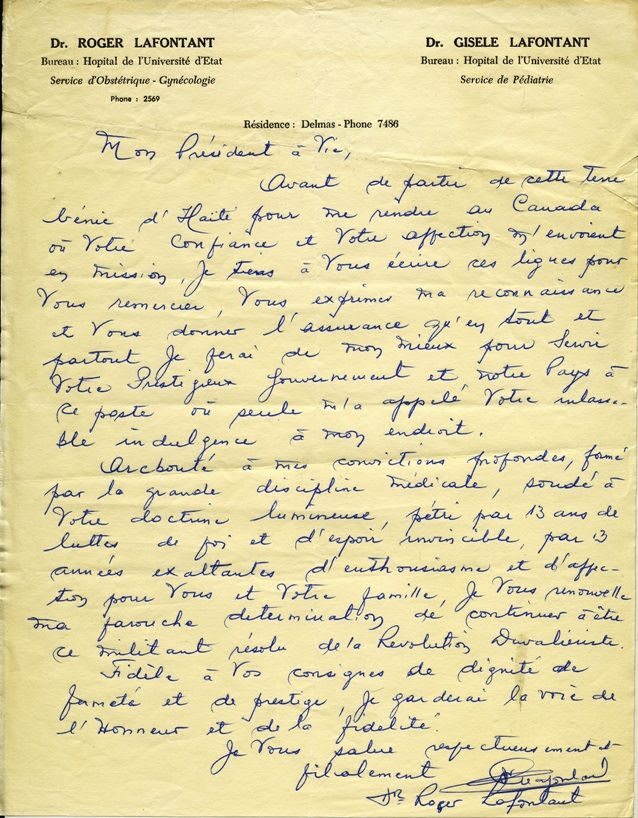 Dr. ROGER LAFONTANT
Bureau : Hopital de l'Université d'Etat
Service d'Obstétrique - Gynécologie
Phone : 2569
Dr. GISELE LAFONTANT
Bureau : Hopital de l'Université d'Etat
Service de Pédiatrie
Résidence : Delmas - Phone 7486
Mon Président à Vie,
Avant de partir de cette terre
bénie d'Haïti pour me rendre au Canada
où Votre Confiance et Votre affection m'envoient
en mission, Je tiens à Vous écrire ces lignes pour
Vous remercier, Vous exprimer ma reconnaissance
et Vous donner l'assurance qu'en tout et
partout Je ferai de mon mieux pour Servir
Votre Prestigieux Gouvernement et notre Pays à
ce poste où seule m'a appelé Votre inlassa-
ble indulgence à mon endroit.
Arcbouté à mes convictions profondes, formé
par la grande discipline médicale, soudé à
Votre doctrine lumineuse, pétri par 13 ans de
luttes de foi et d'espoir invincible, par 13
années exaltantes d'enthousiasme et d'affec-
tion pour Vous et Votre famille, Je Vous renouvelle
ma farouche determination de continuer à être
ce militant résolu de la Revolution Duvaliériste.
Fidèle à Vos consignes de dignité de
fermeté et de prestige, Je garderai la voie de
l'Honneur et de la fidelité.
Je Vous salue respectueusement et
filialement
Dr Roger Lafontant